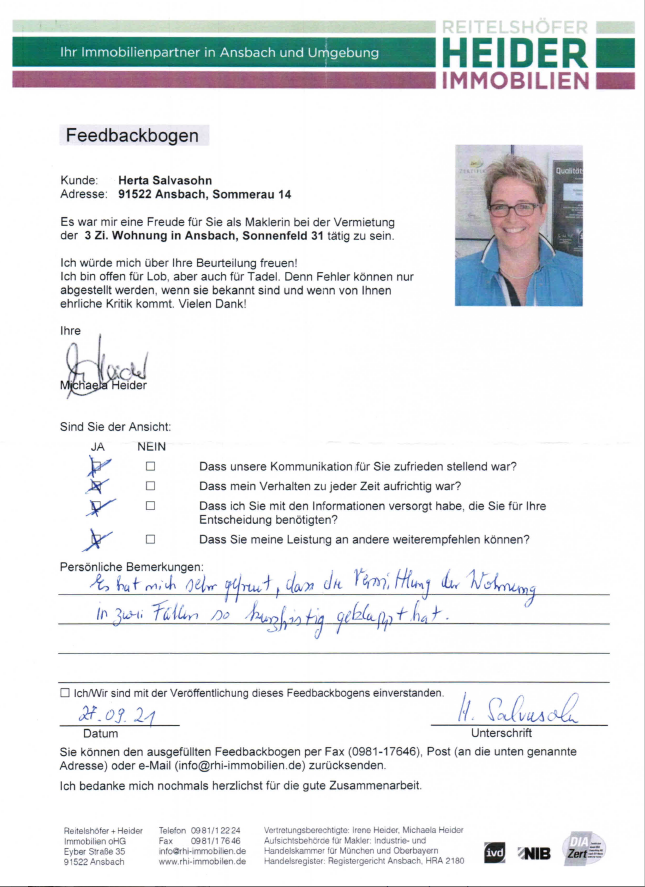 REITELSHÖFER
Ihr Immobilienpartner in Ansbach und Umgebung
HEIDER
IMMOBILIEN
Feedbackbogen
Kunde: Herta Salvasohn
Adresse: 91522 Ansbach, Sommerau 14
Es war mir eine Freude für Sie als Maklerin bei der Vermietung
der 3 Zi. Wohnung in Ansbach, Sonnenfeld 31 tätig zu sein.
Ich würde mich über Ihre Beurteilung freuen!
Ich bin offen für Lob, aber auch für Tadel. Denn Fehler können nur
abgestellt werden, wenn sie bekannt sind und wenn von Ihnen
ehrliche Kritik kommt. Vielen Dank!
Qualität
Ihre
Heider
Michaela Heider
Sind Sie der Ansicht:
JA NEIN
Dass unsere Kommunikation für Sie zufrieden stellend war?
Dass mein Verhalten zu jeder Zeit aufrichtig war?
Dass ich Sie mit den Informationen versorgt habe, die Sie für Ihre
Entscheidung benötigten?
Dass Sie meine Leistung an andere weiterempfehlen können?
Persönliche Bemerkungen:
Es hat mich sehr gefreut, dass die Vermittlung der Wohnung
in zwei Fällen so kurzfristig geklappt hat.
Ich/Wir sind mit der Veröffentlichung dieses Feedbackbogens einverstanden.
27.09.21 H. Salvasohn
Datum Unterschrift
Sie können den ausgefüllten Feedbackbogen per Fax (0981-17646), Post (an die unten genannte
Adresse) oder e-Mail (info@rhi-immobilien.de) zurücksenden.
Ich bedanke mich nochmals herzlichst für die gute Zusammenarbeit.
Reitelshöfer + Heider Telefon 0981/12224 Vertretungsberechtigte: Irene Heider, Michaela Heider
Immobilien oHG Fax 0981/17646 Aufsichtsbehörde für Makler: Industrie- und
Eyber Straße 35 info@rhi-immobilien.de Handelskammer für München und Oberbayern
91522 Ansbach www.rhi-immobilen.de Handelsregister: Registergericht Ansbach, HRA 2180
ivd NIB DIA Zert